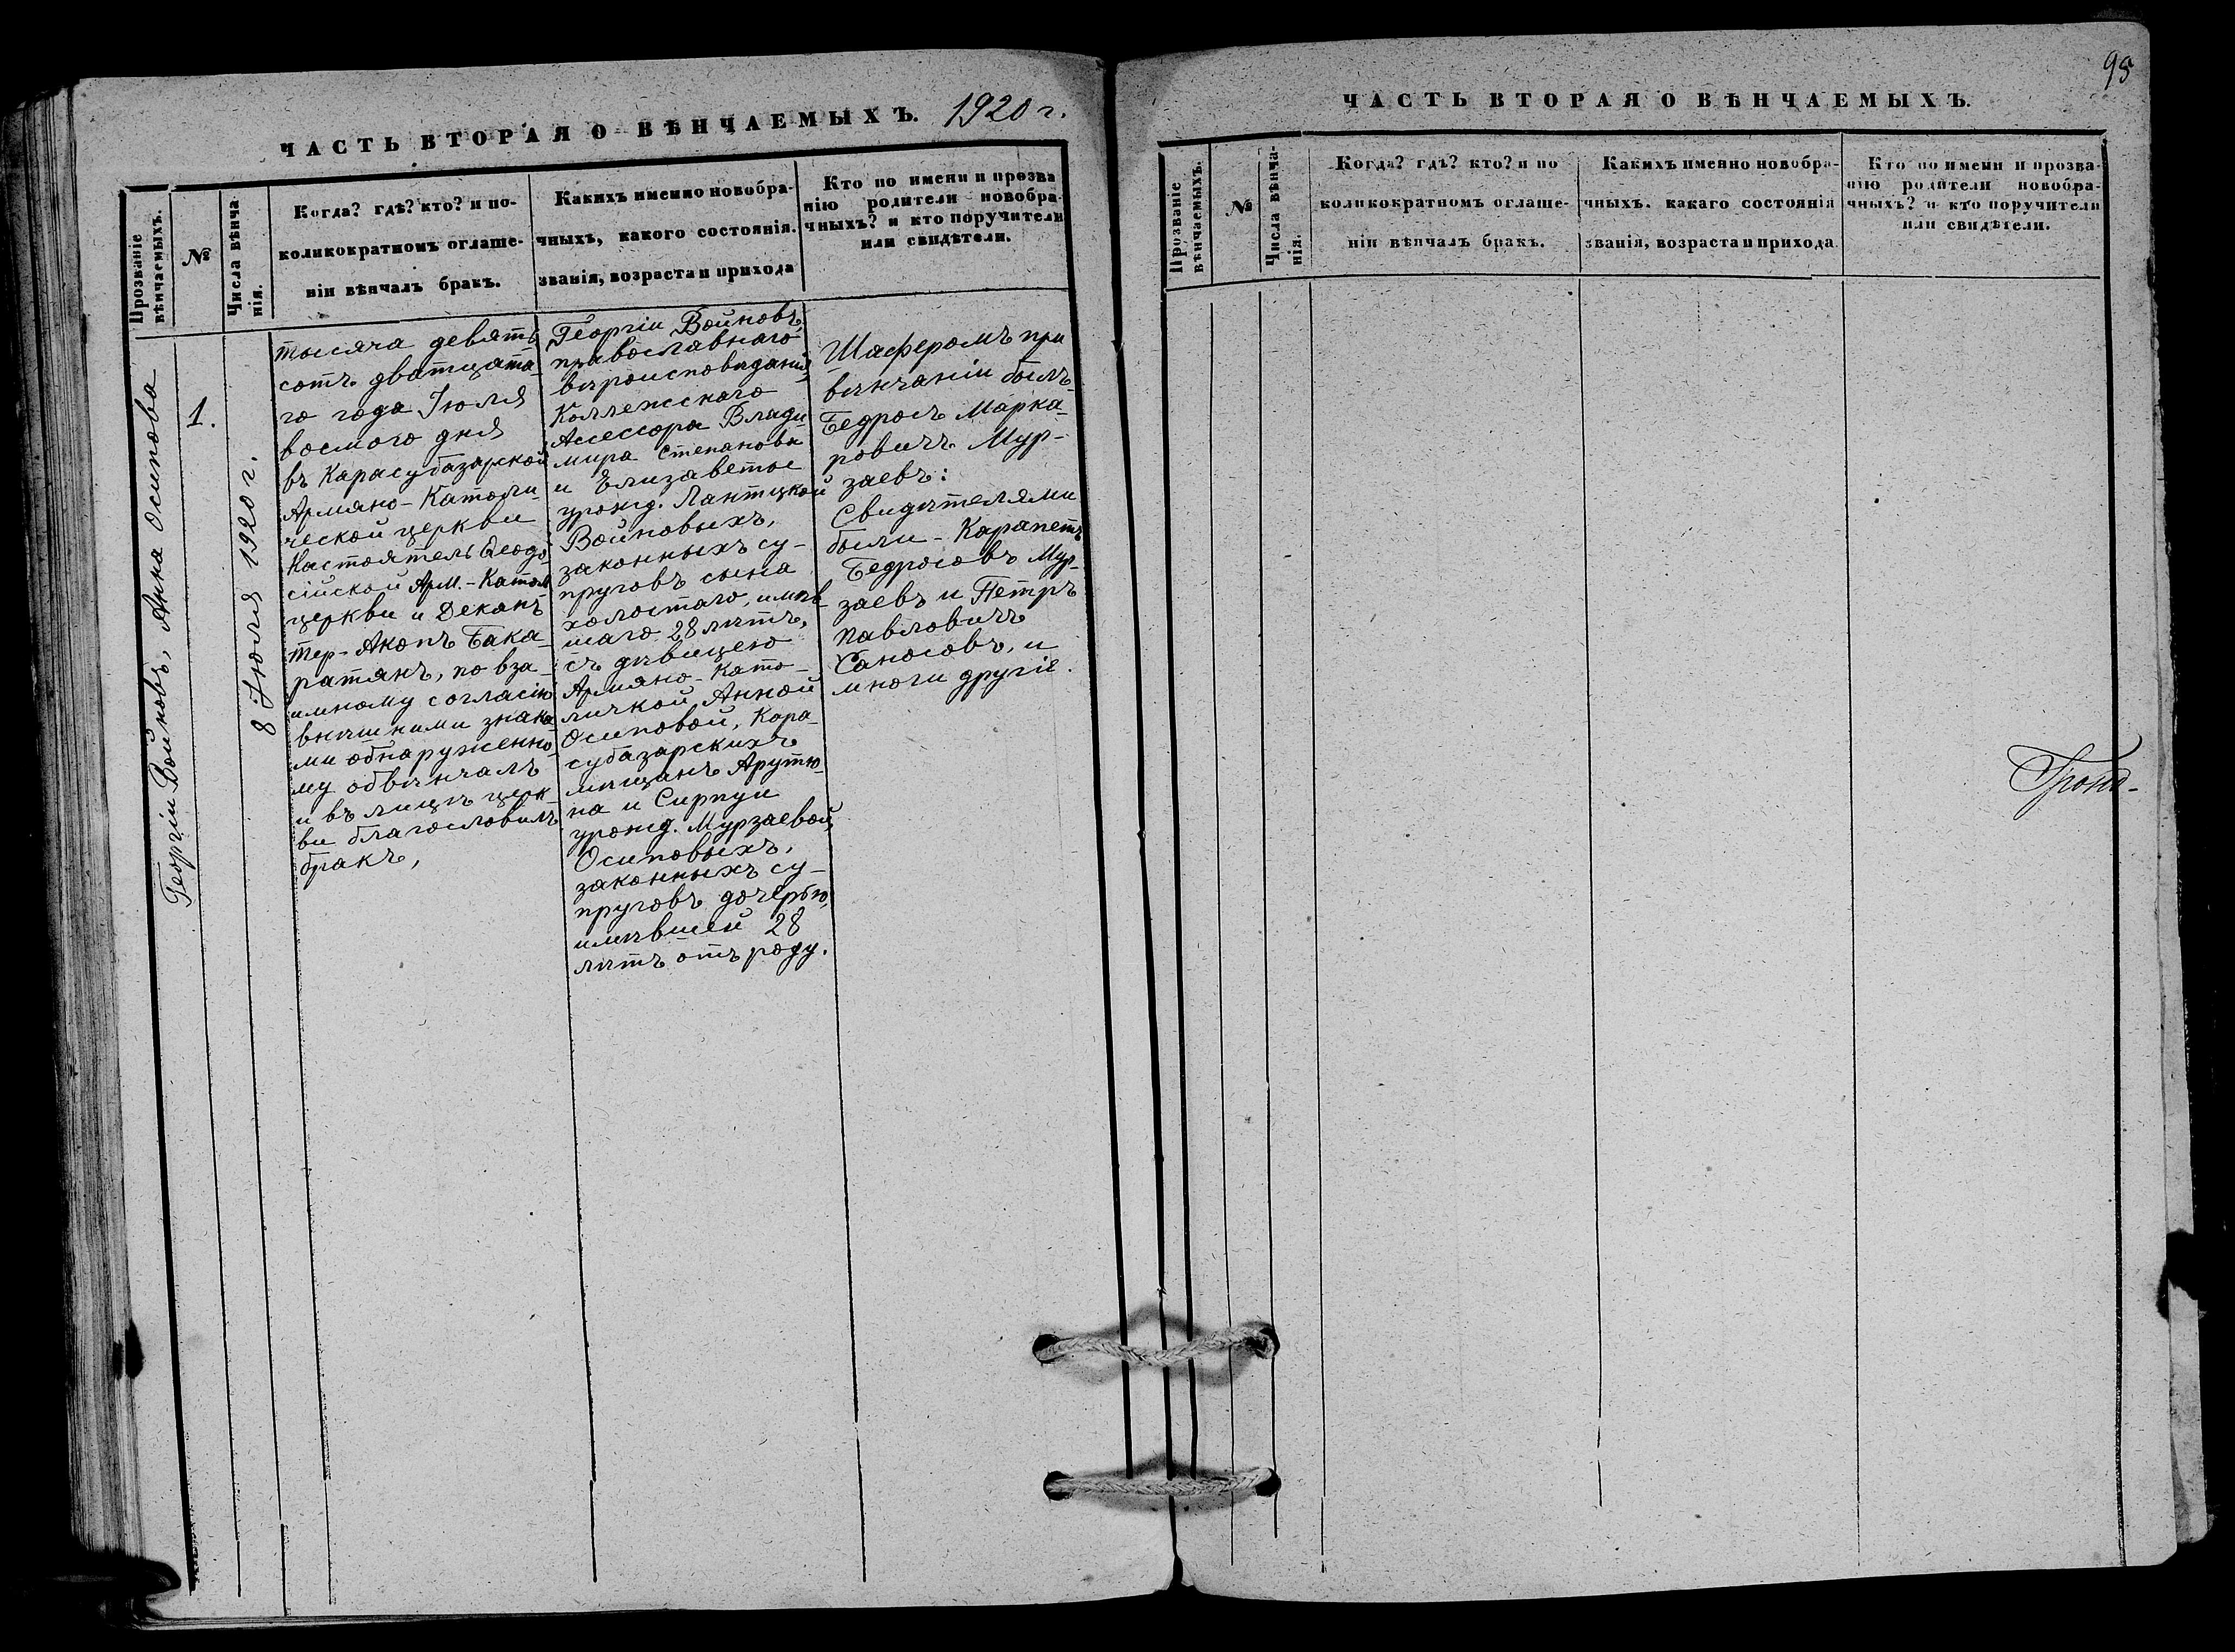 ЧАСТЬ ВТОРАЯ О ВѢНЧАЕМЫХЪ. 1920 г.
Прозваніе
вѣнчаемыхъ.
№
Числа вѣнча-
нія.
Когда? гдѣ? кто? и по-
коликократномъ оглаше-
ніи вѣнчалъ бракъ.
Какихъ именно новобра-
чныхъ, какого состоянія.
званія, возраста и прихода
Кто по имени и прозва
нію родители новобра-
чныхъ? и кто поручители
или свидѣтели.
Георгіи Войновъ, Анна Осипова
1.
8 Июля 1920 г.
тысяча девять
сотъ двотцата
го года Іюля
восмого дня
въ Карасубазарской
Армяно-Католи-
ческой церкви
Настоятель Ѳеодо
сійской Арм.-Катол
церкви и Деканъ
Тер-Акопъ Бака-
ратянъ, по вза-
имному согласію
внѣшними знака
ми обнаруженно-
му обвѣнчалъ
и въ лицѣ церк-
ви благословилъ
бракъ,
Георгіи Войновъ
православнаго
вѣроисповѣданія,
Коллежскаго
Ассесора Влади
мира Степанова
и Елизаветы
урожд. Лантцкой
Войновыхъ,
законныхъ су-
пруговъ сына
холостаго, имѣв-
шаго 28 лѣтъ,
съ дѣвицею
Армяно-Като-
личкой Анной
Осиповой, Кара-
субазарскихъ
мѣщанъ Арутю-
на и Сирпуи
урожд. Мурзаевой,
Осиповыхъ,
законныхъ су-
пруговъ дочерью,
имѣвшей 28
лѣтъ отъ роду.
Шаферомъ при
вѣнчаніи былъ-
Бедросъ Марка-
ровичъ Мур-
заевъ:
Свидѣтелями
были - Карапетъ
Бедросовъ Мур-
заевъ и Петръ
Павловичъ
Саносовъ, и
многи другіе.
95
ЧАСТЬ ВТОРАЯ О ВѢНЧАЕМЫХЪ.
Прозваніе
вѣнчаемыхъ.
№
Числа вѣнча-
нія.
Когда? гдѣ? кто? и по
коликократномъ оглаше-
ніи вѣнчалъ бракъ.
Какихъ именно новобра-
чныхъ. какаго состоянія
званія, возраста и прихода.
Кто по имени и прозва-
нію родители новобра-
чныхъ? и кто поручители
или свидѣтели.